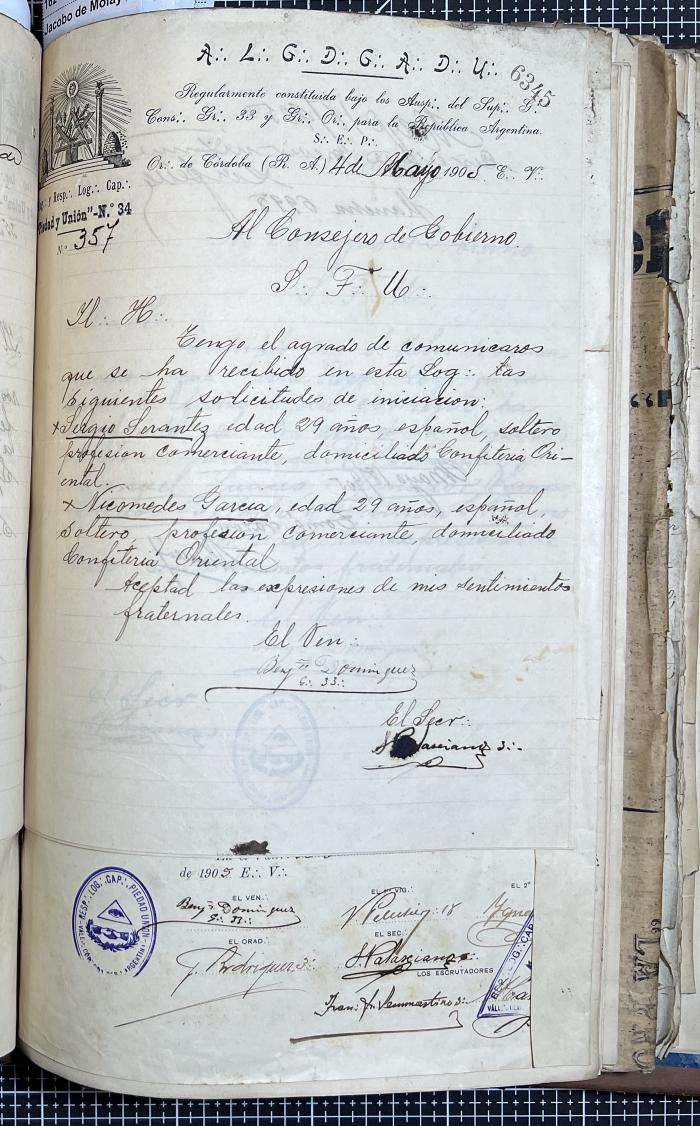 Jacobo de Molay
A∴ L∴ G∴ D∴ G∴ A∴ D∴ U∴
6345
Regularmente constituida bajo los Ausp∴ del Sup∴ G∴
Cons∴ Gr∴ 33 y Gr∴ Or∴ para la República Argentina.
S∴ E∴ P∴
Or∴ de Córdoba (R. A.) 4 de Mayo 1905 E∴ V∴
y Resp∴ Log∴ Cap∴
Piedad y Unión"-N.° 34
N.° 357
Al Consejero de Gobierno.
S∴ F∴ U∴
Il∴ H∴
Tengo el agrado de comunicaros
que se ha recibido en esta Log∴ las
siguientes solicitudes de iniciacion:
x Sergio Serantez edad 29 años español, soltero
profesion comerciante, domiciliado Confiteria Ori-
ental.
x Nicomedes Garcia, edad 29 años, español,
soltero, profesion comerciante, domiciliado
Confiteria Oriental
Aceptad las expresiones de mis sentimientos
fraternales.
El Ven∴
Benjn Dominguez
G∴ 33∴
El Secr∴
de 1905 E∴ V∴
EL VEN∴
Benjn Dominguez
G∴ 33∴
EL 1er VIG∴
EL 2°
EL ORAD∴
J. Rodriguez
EL SEC∴
LOS ESCRUTADORES
RESP∴ LOG∴ CAP∴ PIEDAD Y UNION